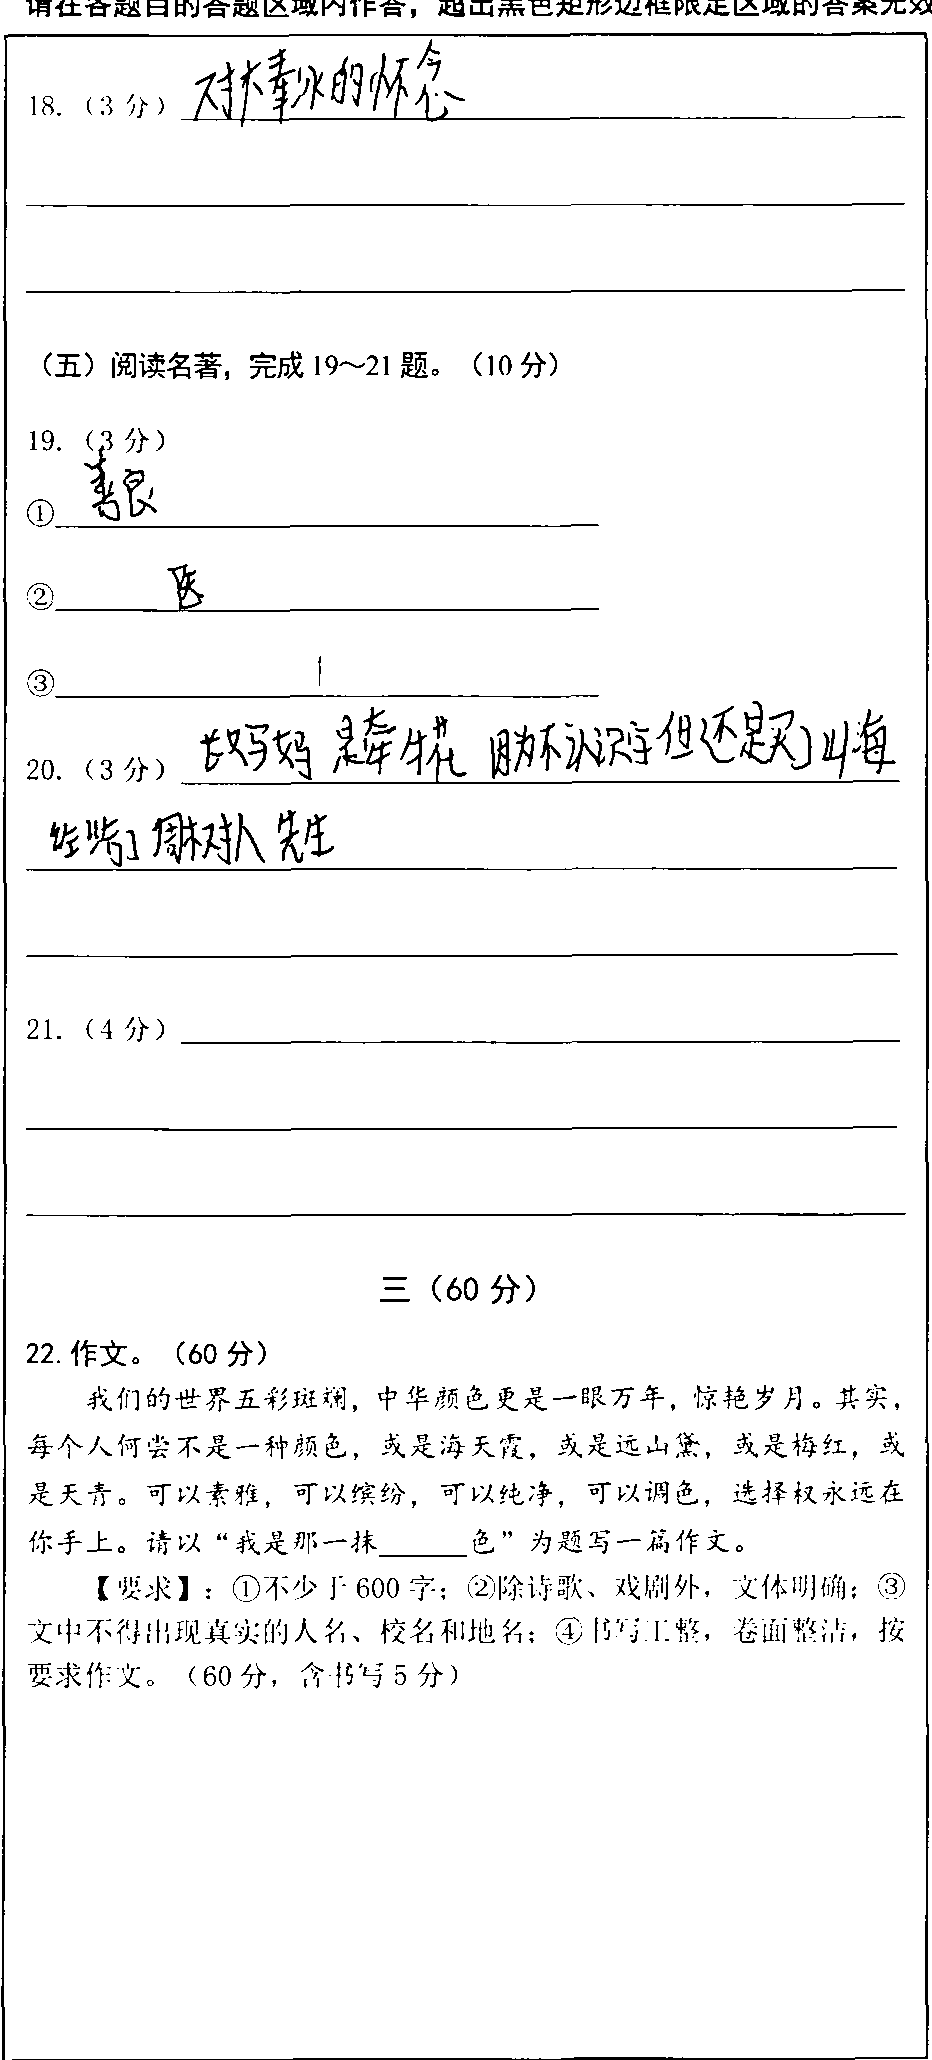 请在各题目的答题区域内作答，超出黑色矩形边框限定区域的答案无效
18.（3 分）对的怀念
（五）阅读名著，完成 19～21 题。（10 分）
19.（3 分）
①善良
②医
③
20.（3 分）长妈妈 是牵牛花 因为不认识字但还是买了山海
经给了周树人先生
21.（4 分）
三（60 分）
22. 作文。（60 分）
我们的世界五彩斑斓，中华颜色更是一眼万年，惊艳岁月。其实，
每个人何尝不是一种颜色，或是海天霞，或是远山黛，或是梅红，或
是天青。可以素雅，可以缤纷，可以纯净，可以调色，选择权永远在
你手上。请以“我是那一抹______色”为题写一篇作文。
【要求】：①不少于 600 字；②除诗歌、戏剧外，文体明确；③
文中不得出现真实的人名、校名和地名；④书写工整，卷面整洁，按
要求作文。（60 分，含书写 5 分）